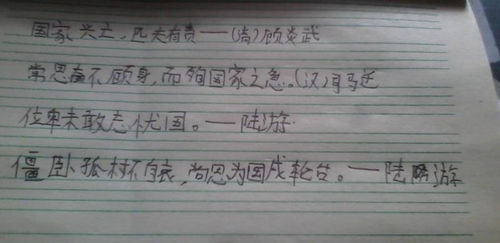 国家兴亡,匹夫有责——(清)顾炎武
常思奋不顾身,而殉国家之急。(汉)司马迁
位卑未敢忘忧国。——陆游
僵卧孤村不自哀,尚思为国戍轮台。——陆游